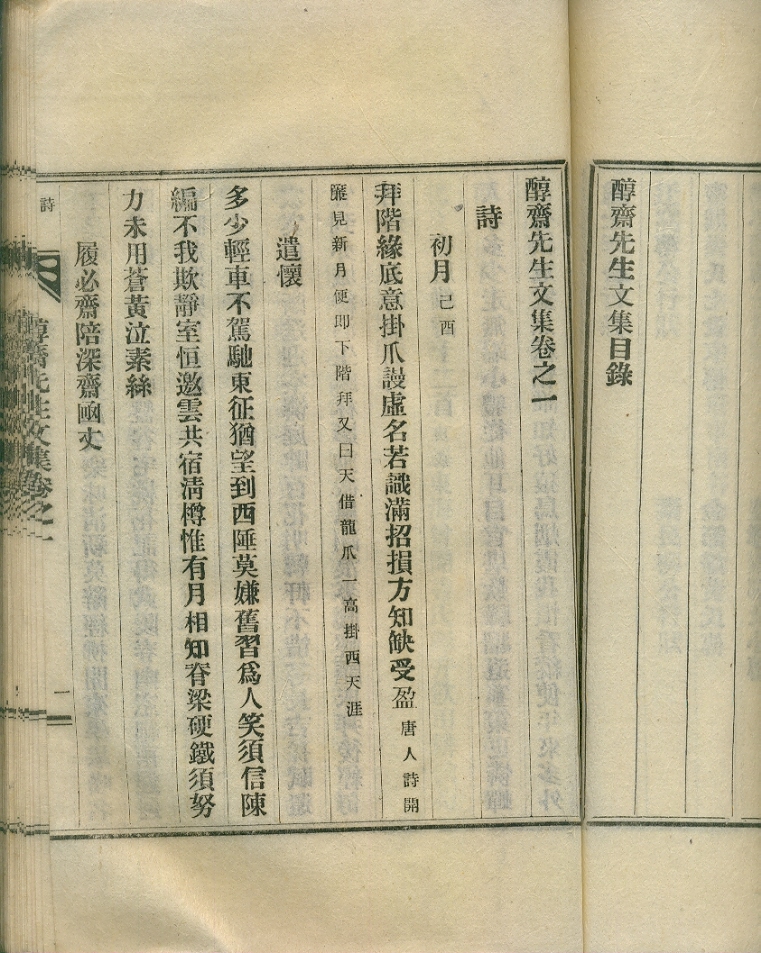 醇齋先生文集目錄
醇齋先生文集卷之一
詩
初月己酉
拜階緣底意掛爪謾虛名若識滿招損方知缺受盈唐人詩開
匳見新月便即下階拜又曰天借龍爪一高掛西天涯
遣懷
多少輕車不駕馳東征猶望到西陲莫嫌舊習爲人笑須信陳
編不我欺靜室恒邀雲共宿淸樽惟有月相知脊梁硬鐵須努
力未用蒼黃泣素絲
履必齋陪深齋函丈
詩
醇齋先生文集卷之一
一